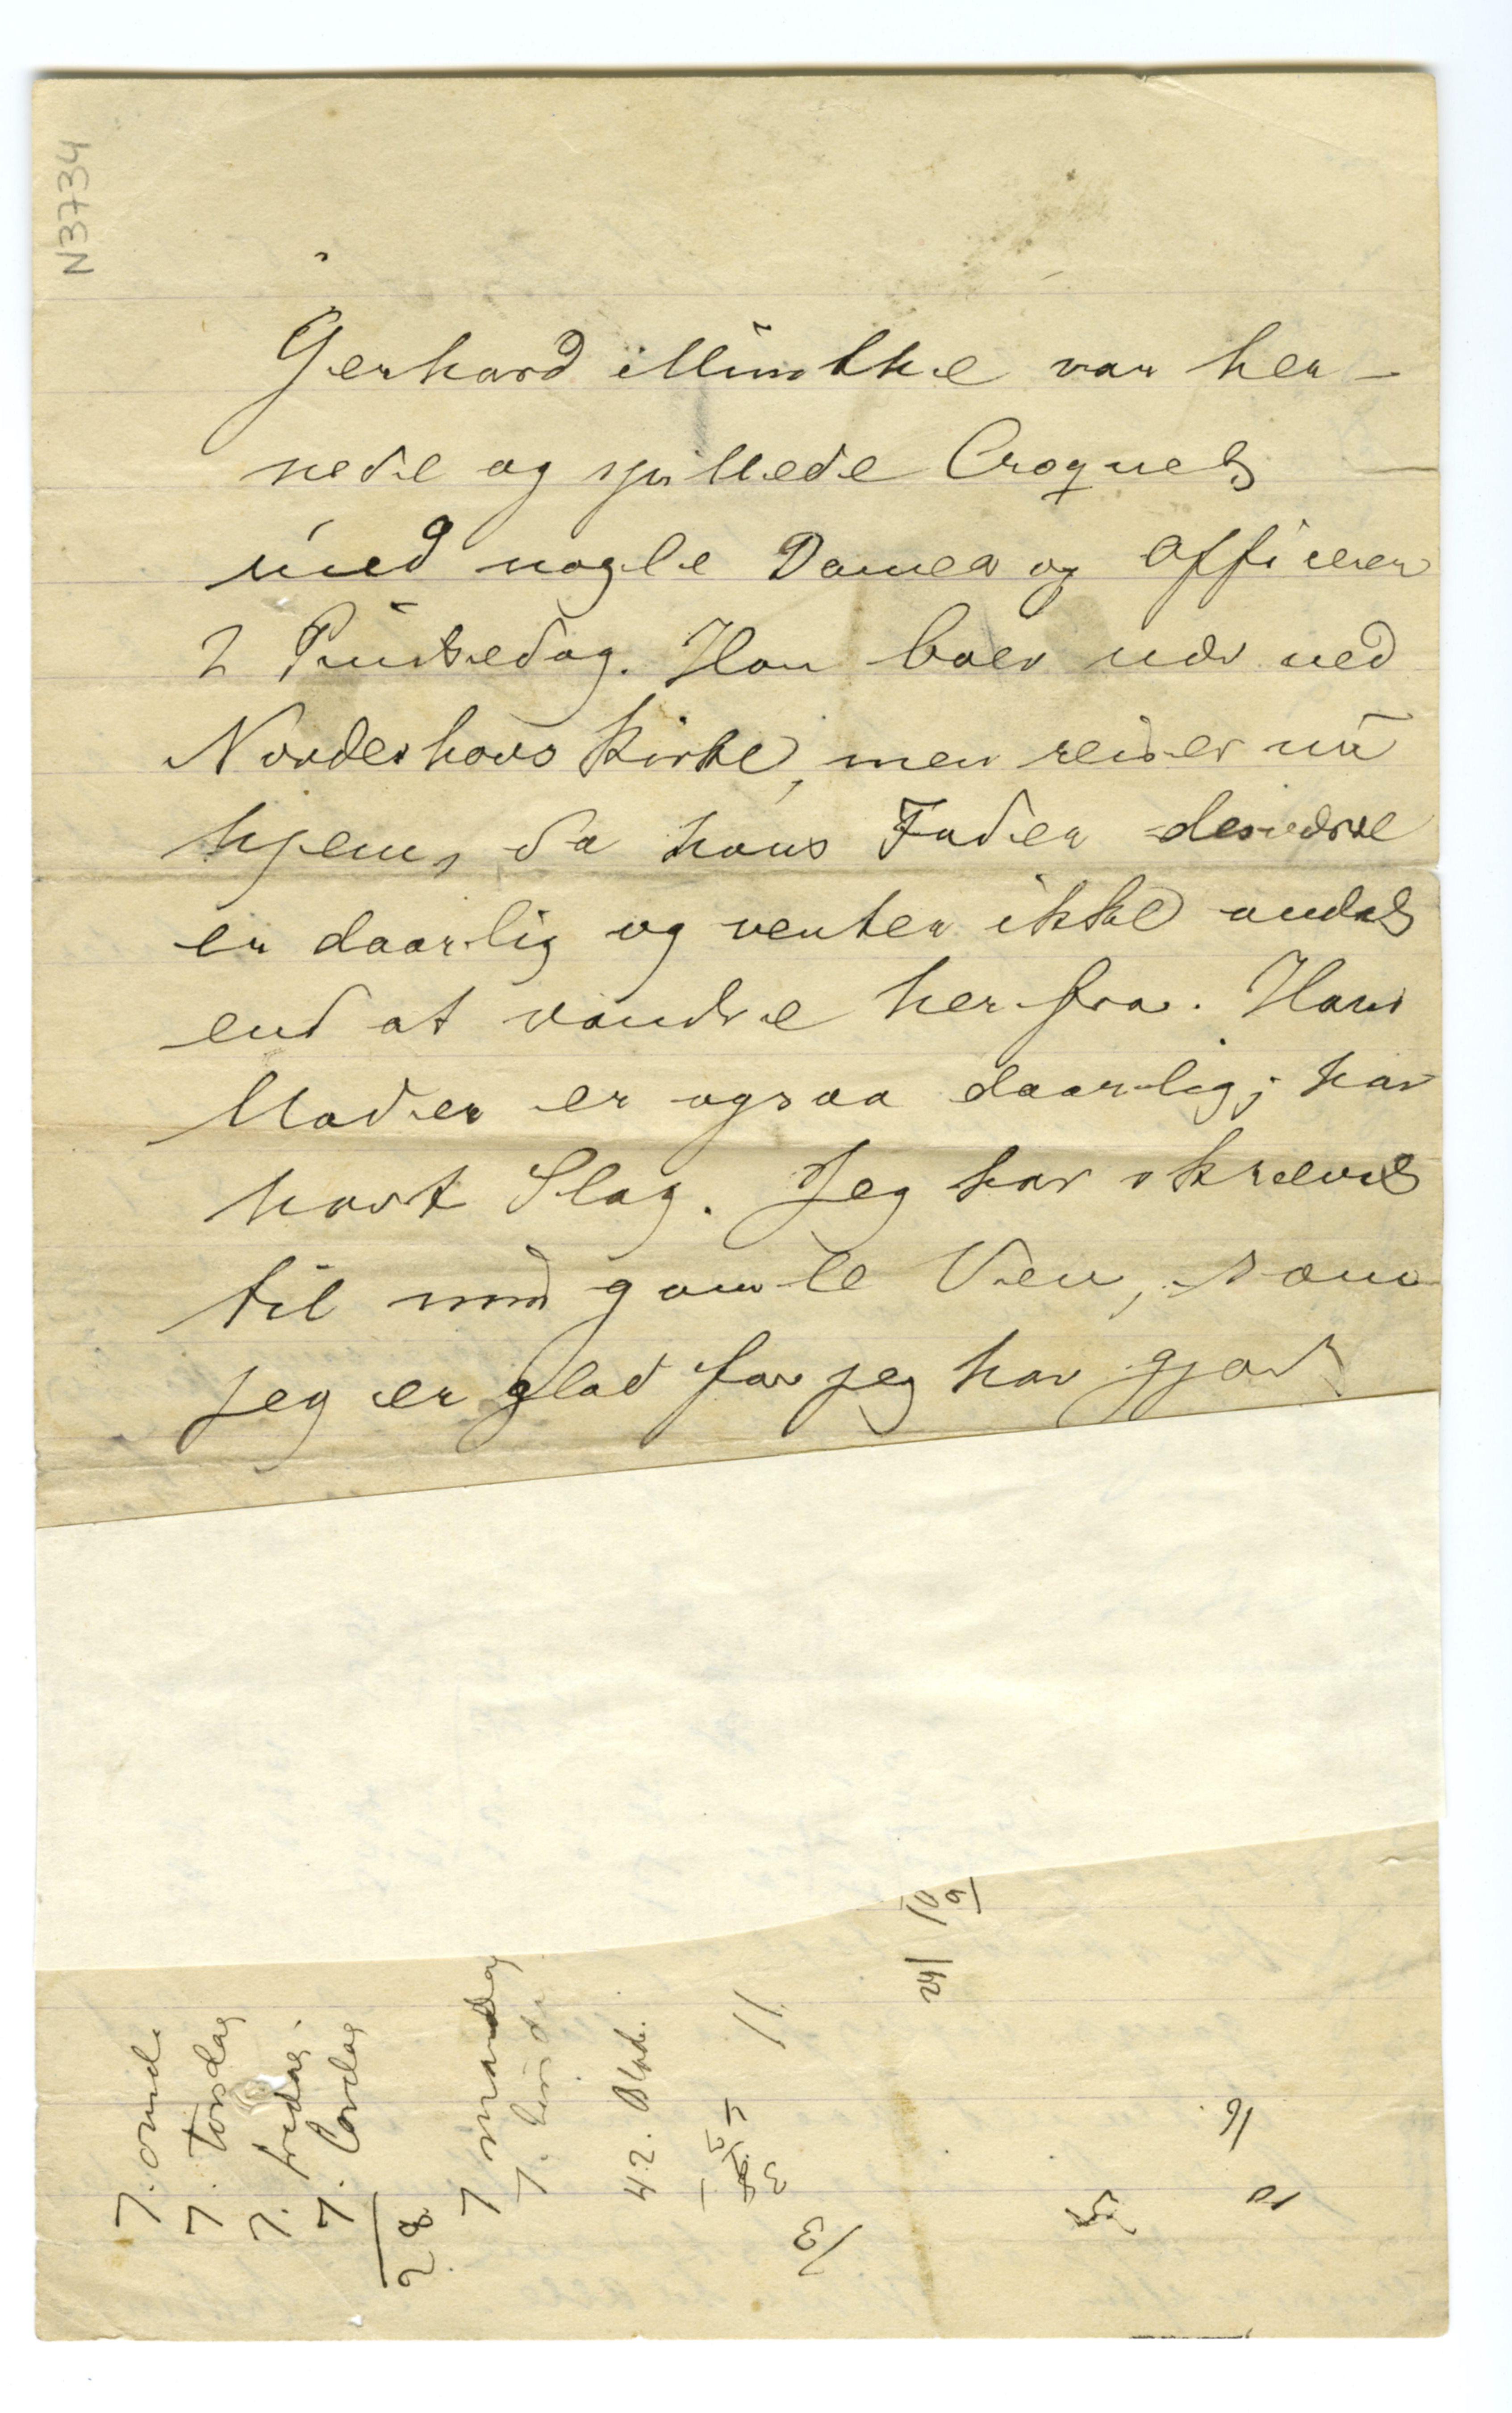 N3734
Gerhard Munthe var her-
nede og spillede Croquet
med nogle Damer og Officerer
2 Pindsedag. Han boer nær ved
Norderhovs Kirke, men reiser nu
hjem, da hans Fader desværre
er daarlig og venter ikke andet
end at vandre herfra. Hans
Moder er ogsaa daarlig; har
havt Slag. Jeg har skrevet
til min gamle Ven, som
jeg er glad for jeg har gjort
7. onsd.
7. Torsdag
7. fredag.
7. Lordag
28
7 mandag
7.
42.
11
13
24
10
9
16
10